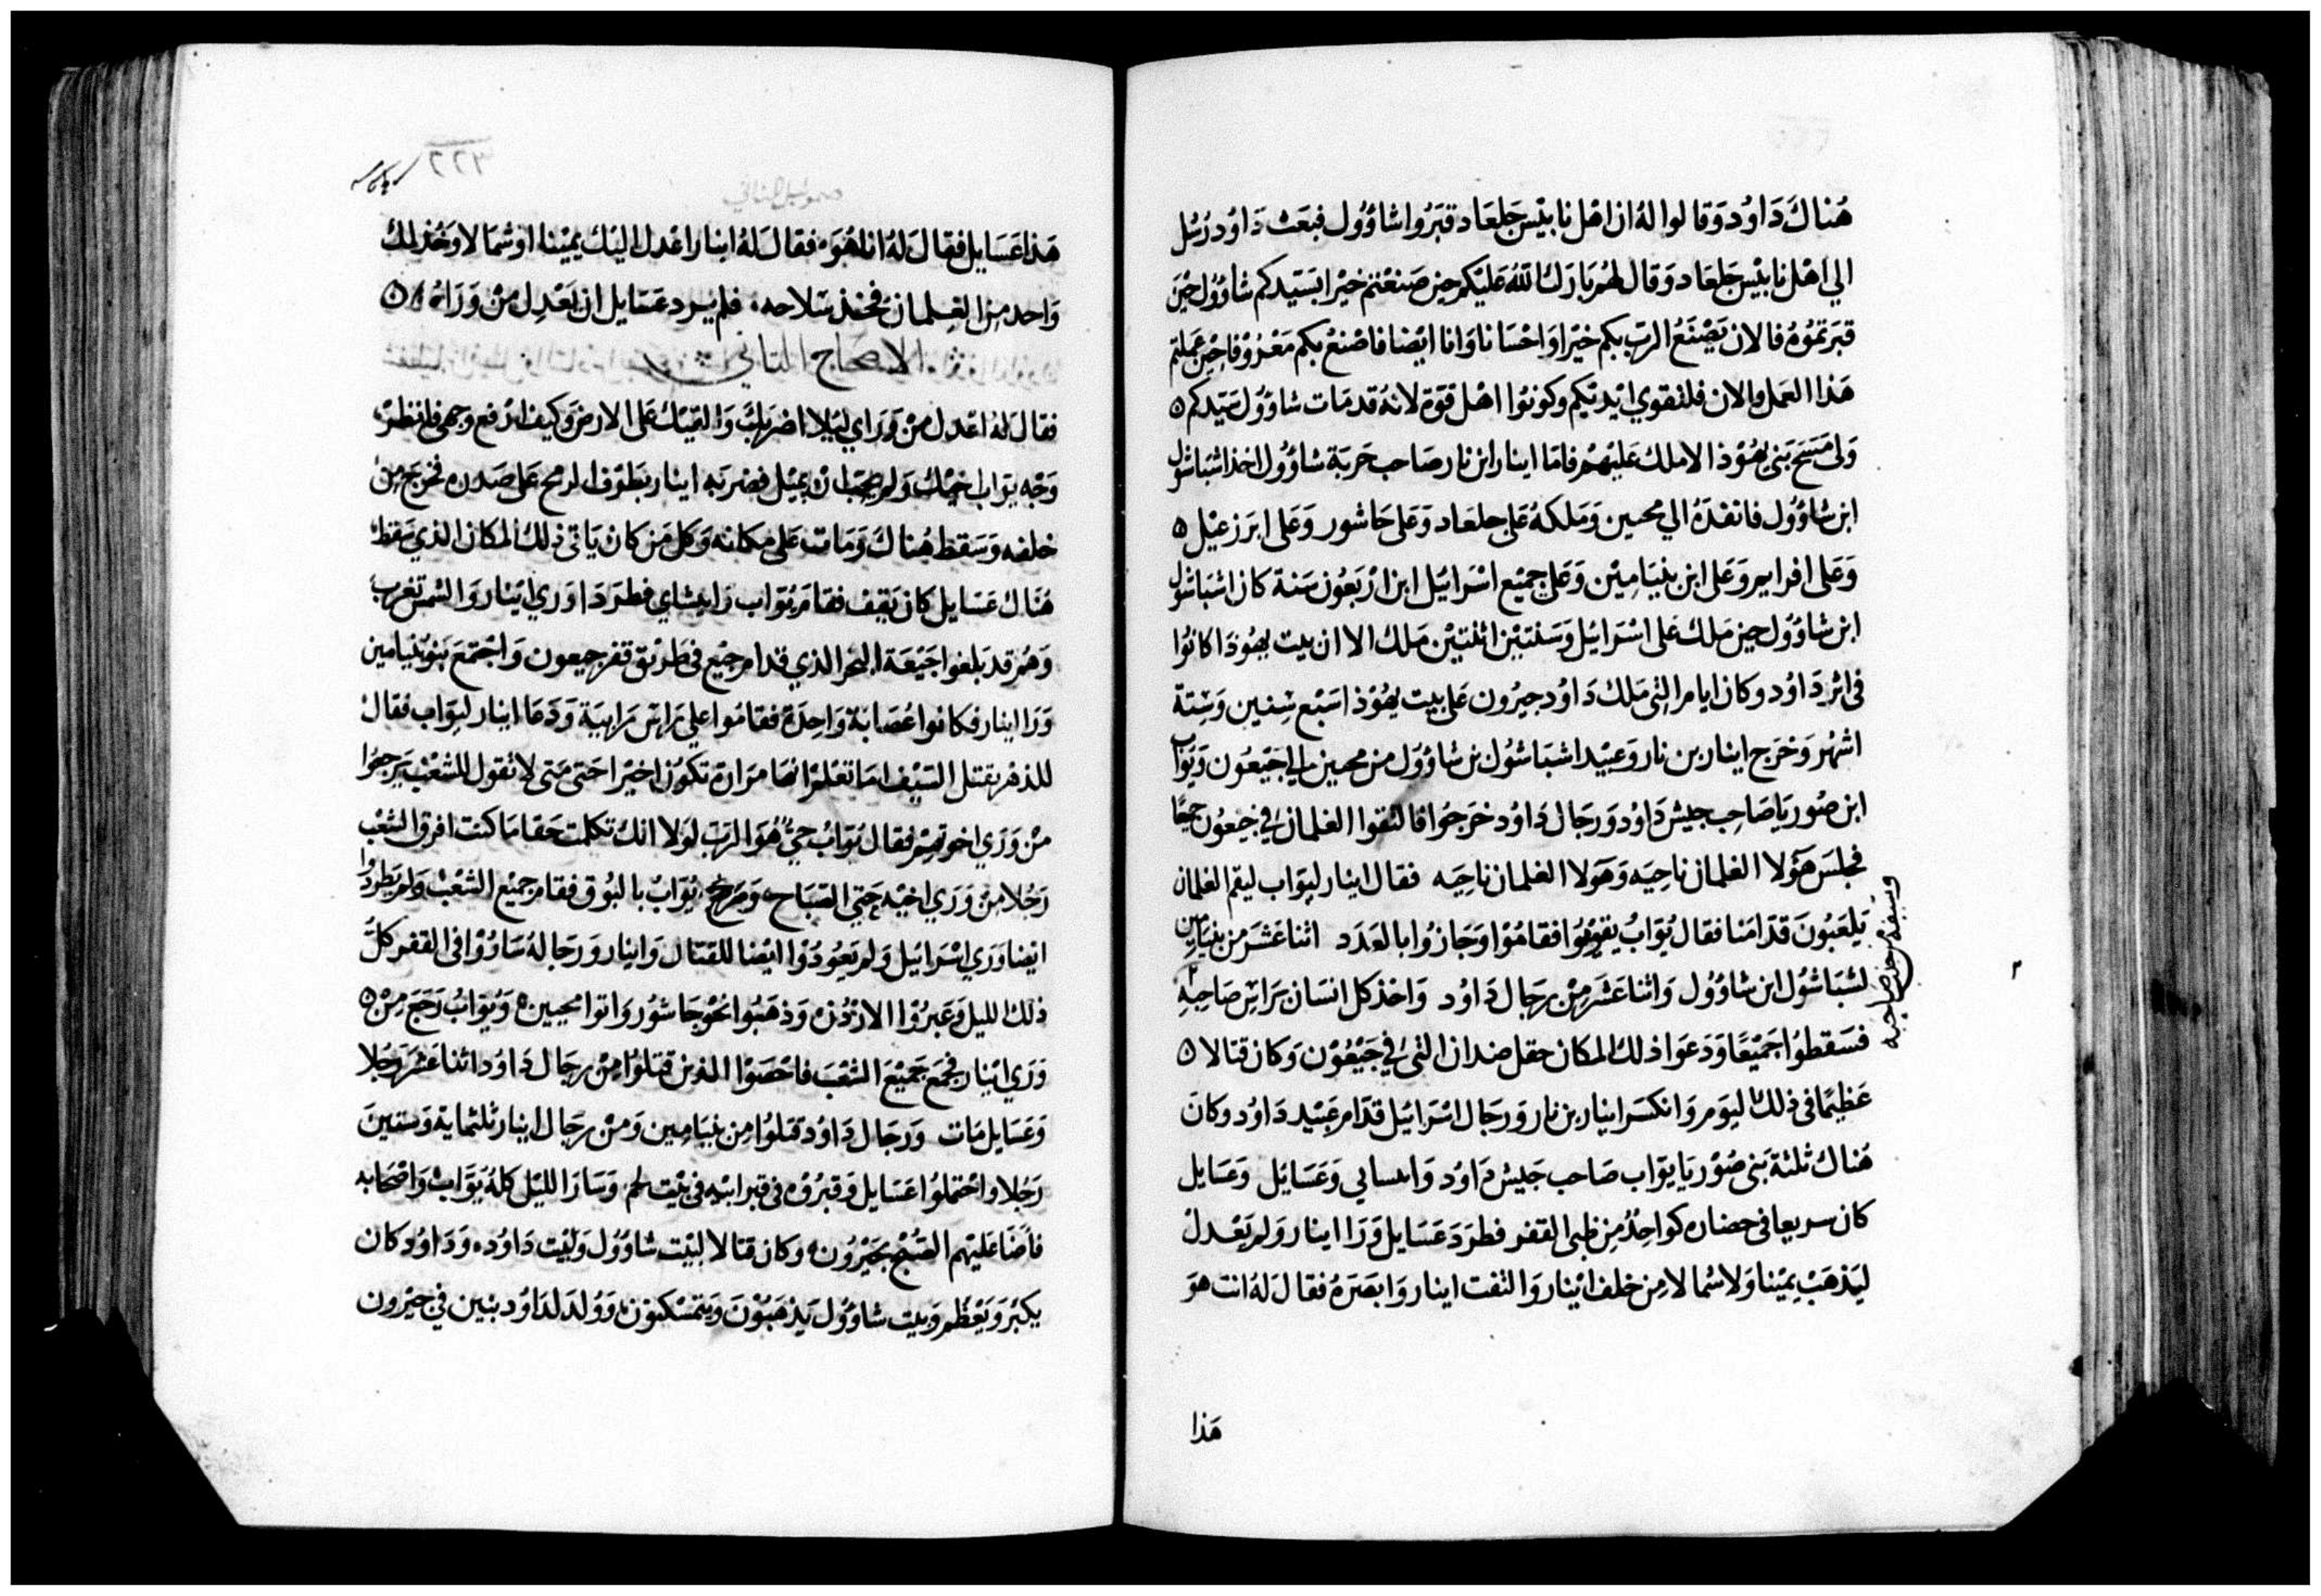 هُناكَ دَاوُد وَقالوا لهُ ان اهْل نابيْس جَلعَاد قبَرُوا شاوُول فبَعَث دَاوُد رُسُل
الي اهْل نابيْس جَلعَاد وَقال لهُم بَارَك اللهُ عَليْكم حين صَنعْتم خيْرا بسَيّدكم شاوُول حيْن
قبَرتمُوهُ فالان يَصْنَعُ الرَبّ بكم خيْرا وَاحْسَانا وَانا ايْضا فاصْنعْ بكم مَعْرُوفا حِيْن عَملتم
هَذا العَمل والان فلتقوي ايْديْكم وكونوُا اهْل قوّة لانهُ قد مَات شاوُول سَيّدكم ٥
وَلي مَسَح بَني يهُوْذا لاملك عَليْهمْ فامّا ابنار ابن نار صَاحب حَربَة شاوُول اخذ اشبَاشول
ابن شاوُول فانفذهُ الي محيين وَمَلكهُ عَلي جلعَاد وَعَلي حَاشور وَعَلي ابَرزعيْل ٥
وَعَلي افرايم وَعَلي ابن بنيَامِيْن وَعَلي جميْع اسْرَائيَل ابن ارْبَعُون سَنة كان اشبَاشول
ابن شاوُول حين مَلكَ عَلي اسْرَائيل وَسَنتيْن اثنتيْن مَلك الا ان بيت يهُوْذا كانوُا
في اثر دَاوُد وكان ايام التي مَلك دَاوُد حبرُون عَلي بيت يهُوْذا سَبْع سِنين وَسِتة
اشهُر وَخرَج ابنار بن نار وَعَبيْد اشبَاشُول بن شاوُول من محيين الي جَبْعُون وَيوَاب
ابن صُوريَا صَاحِب جيْش دَاوُد وَرجَال دَاوُد خرَجوُا فالتقوا الغلمان في جبعُون جميعًا
فجلسَ هَؤلا الغلمان ناحيَه وَهَولا الغلمان ناحِيَه فقال ابنار ليوَاب ليقم الغلمان
يَلعَبُونَ قدّامَنا فقال يُوَابُ يقومُوا فقامُوْا وَجَازُوا بالعَدَد اثنا عَشرَ من بنيَامِين
لشبَاشُول ابن شاوُول وَاثنا عَشرَ مِنْ رجَال دَاوُد وَاخذ كل انسَان برَاس صَاحِبهِ
وسيفه في جنب صاحبه
فسَقطوُا جَميْعًا وَدعَوا ذلك المكان حقل صَدان التي في جَبْعُوْن وَكان قتالا ٥
عَظيْمًا في ذلك اليَوم وَانكسَر ابنار بن نار وَرجَال اسْرَائيْل قدّام عَبيْد دَاوُد وكانَ
هُناك ثلثة بَني صُوْريَا يوَاب صَاحب جَيش دَاوُد وَابساي وَعَسَائل وَعَسَايل
كان سريعا في حضاره كواحِدٌ مِن ظبي القفر فطرَد عَسَايل وَرَا ابنار وَلم يَعْدلْ
ليَذهَبْ يميْنا وَلا شمالا مِن خلف ابْنار وَالتفت ابنار وَابصَرَهُ فقال لهُ انت هوَ
هَذا
صموايل الثاني
٦٢٢
هَذا عَسَايل فقال لهُ انا هُوَ فقال لهُ ابنار اعْدل اليْك يميْنا اوْ شمَالا وَخُذ لك
وَاحد مِن الغِلمان فخذ سَلاحه فلم يرد عَسَايل ان يَعْدِل منْ وَرَائه ٥
الاصحاج الثاني
فقال له اعْدل منْ وَرَاي ليْلا اضربك وَالقيْك عَلي الارض وَكيف ارْفع وَجهي فانظرْ
وَجْه يوَاب اخيْك وَلم يحبّ ان يميْل فضربه ابنار بَطوْف الرمْح عَلي صَدره فخرَج مِن
خلفه وَسَقط هُناكَ وَمَات عَلي مكانه وَكل مَن كان يَاتي ذلك المكان الذي سَقط
هُنَاك عَسَايل كان يَقف فقام يُوَاب وَابيشاي فطرَدَا وَرَي ابْنار وَالشمْس تغربُ
وَهُم قد بَلغوا جَبْعَة البحر الذي قدام جيْع في طريْق قفر جبعون وَاجْتمَعَ بَنُو بنيَامين
وَرَا ابنار فكانوا عُصَابَة وَاحِدَة فقامُوا علي رَاس رَابيَة وَدَعَا ابنار ليوَاب فقالْ
للدهْر يقتل السَيْف امَا تعْلم انهَا مرَارة تكوْن اخيْرا حَتي مَتي لا تقول للشعْب يَرجعوُا
منْ وَرَي اخوتهمْ فقال يُوَابُ حَيٌّ هُوَ الرَبّ لوْلا انك تكلمت حَقا مَا كنت افرق الشعْب
رَجُلا منْ وَرَي اخيْه حَتي الصَبَاح وَصَرخ يُوَابْ بالبُوق فقام جميْع الشعْبْ وَلم يَطردُوا
ايْضا وَرَي اسْرَائيْل وَلم يَعُودُوْا ايْضا للقتال وَابنار وَرجَاله سَارُوْا في القفر كلَّ
ذلك الليْل وَعَبرُوْا الارْدُن وَذهَبُوا نحْو جَاشُور وَاتوا محيين وَيُوَابُ رَجَع مِنْ ٥
وَرَي ابْنار فجمَع جَميْعَ الشعْبَ فاحْصَوْا الذين قتلوْا منْ رجَال دَاوُد اثنا عَشرَ رَجُلا
وَعَسَايل مَات وَرجَال دَاوُد قتلوُا مِن بنيَامِين وَمنْ رجَال ابنار ثلثماية وَستينَ
رَجُلا وَاحْتملوُا عَسَايل وَقبرُوْه في قبر ابيْه في بيْت لحم وَسَارَ الليْل كلهُ يَوَابْ وَاصْحَابه
فاضَا عَليْهم الصُبْح بحَبْرُون وكان قتالا لبيْت شاوُول وَلبيْت دَاوُد وَدَاوُد كان
يكبُر وَيَعْظم وَبيت شاوُول يَذهَبُوْنَ وَيتمسْكنوْن وَوُلدَ لدَاوُد بَنين في حَبْرون